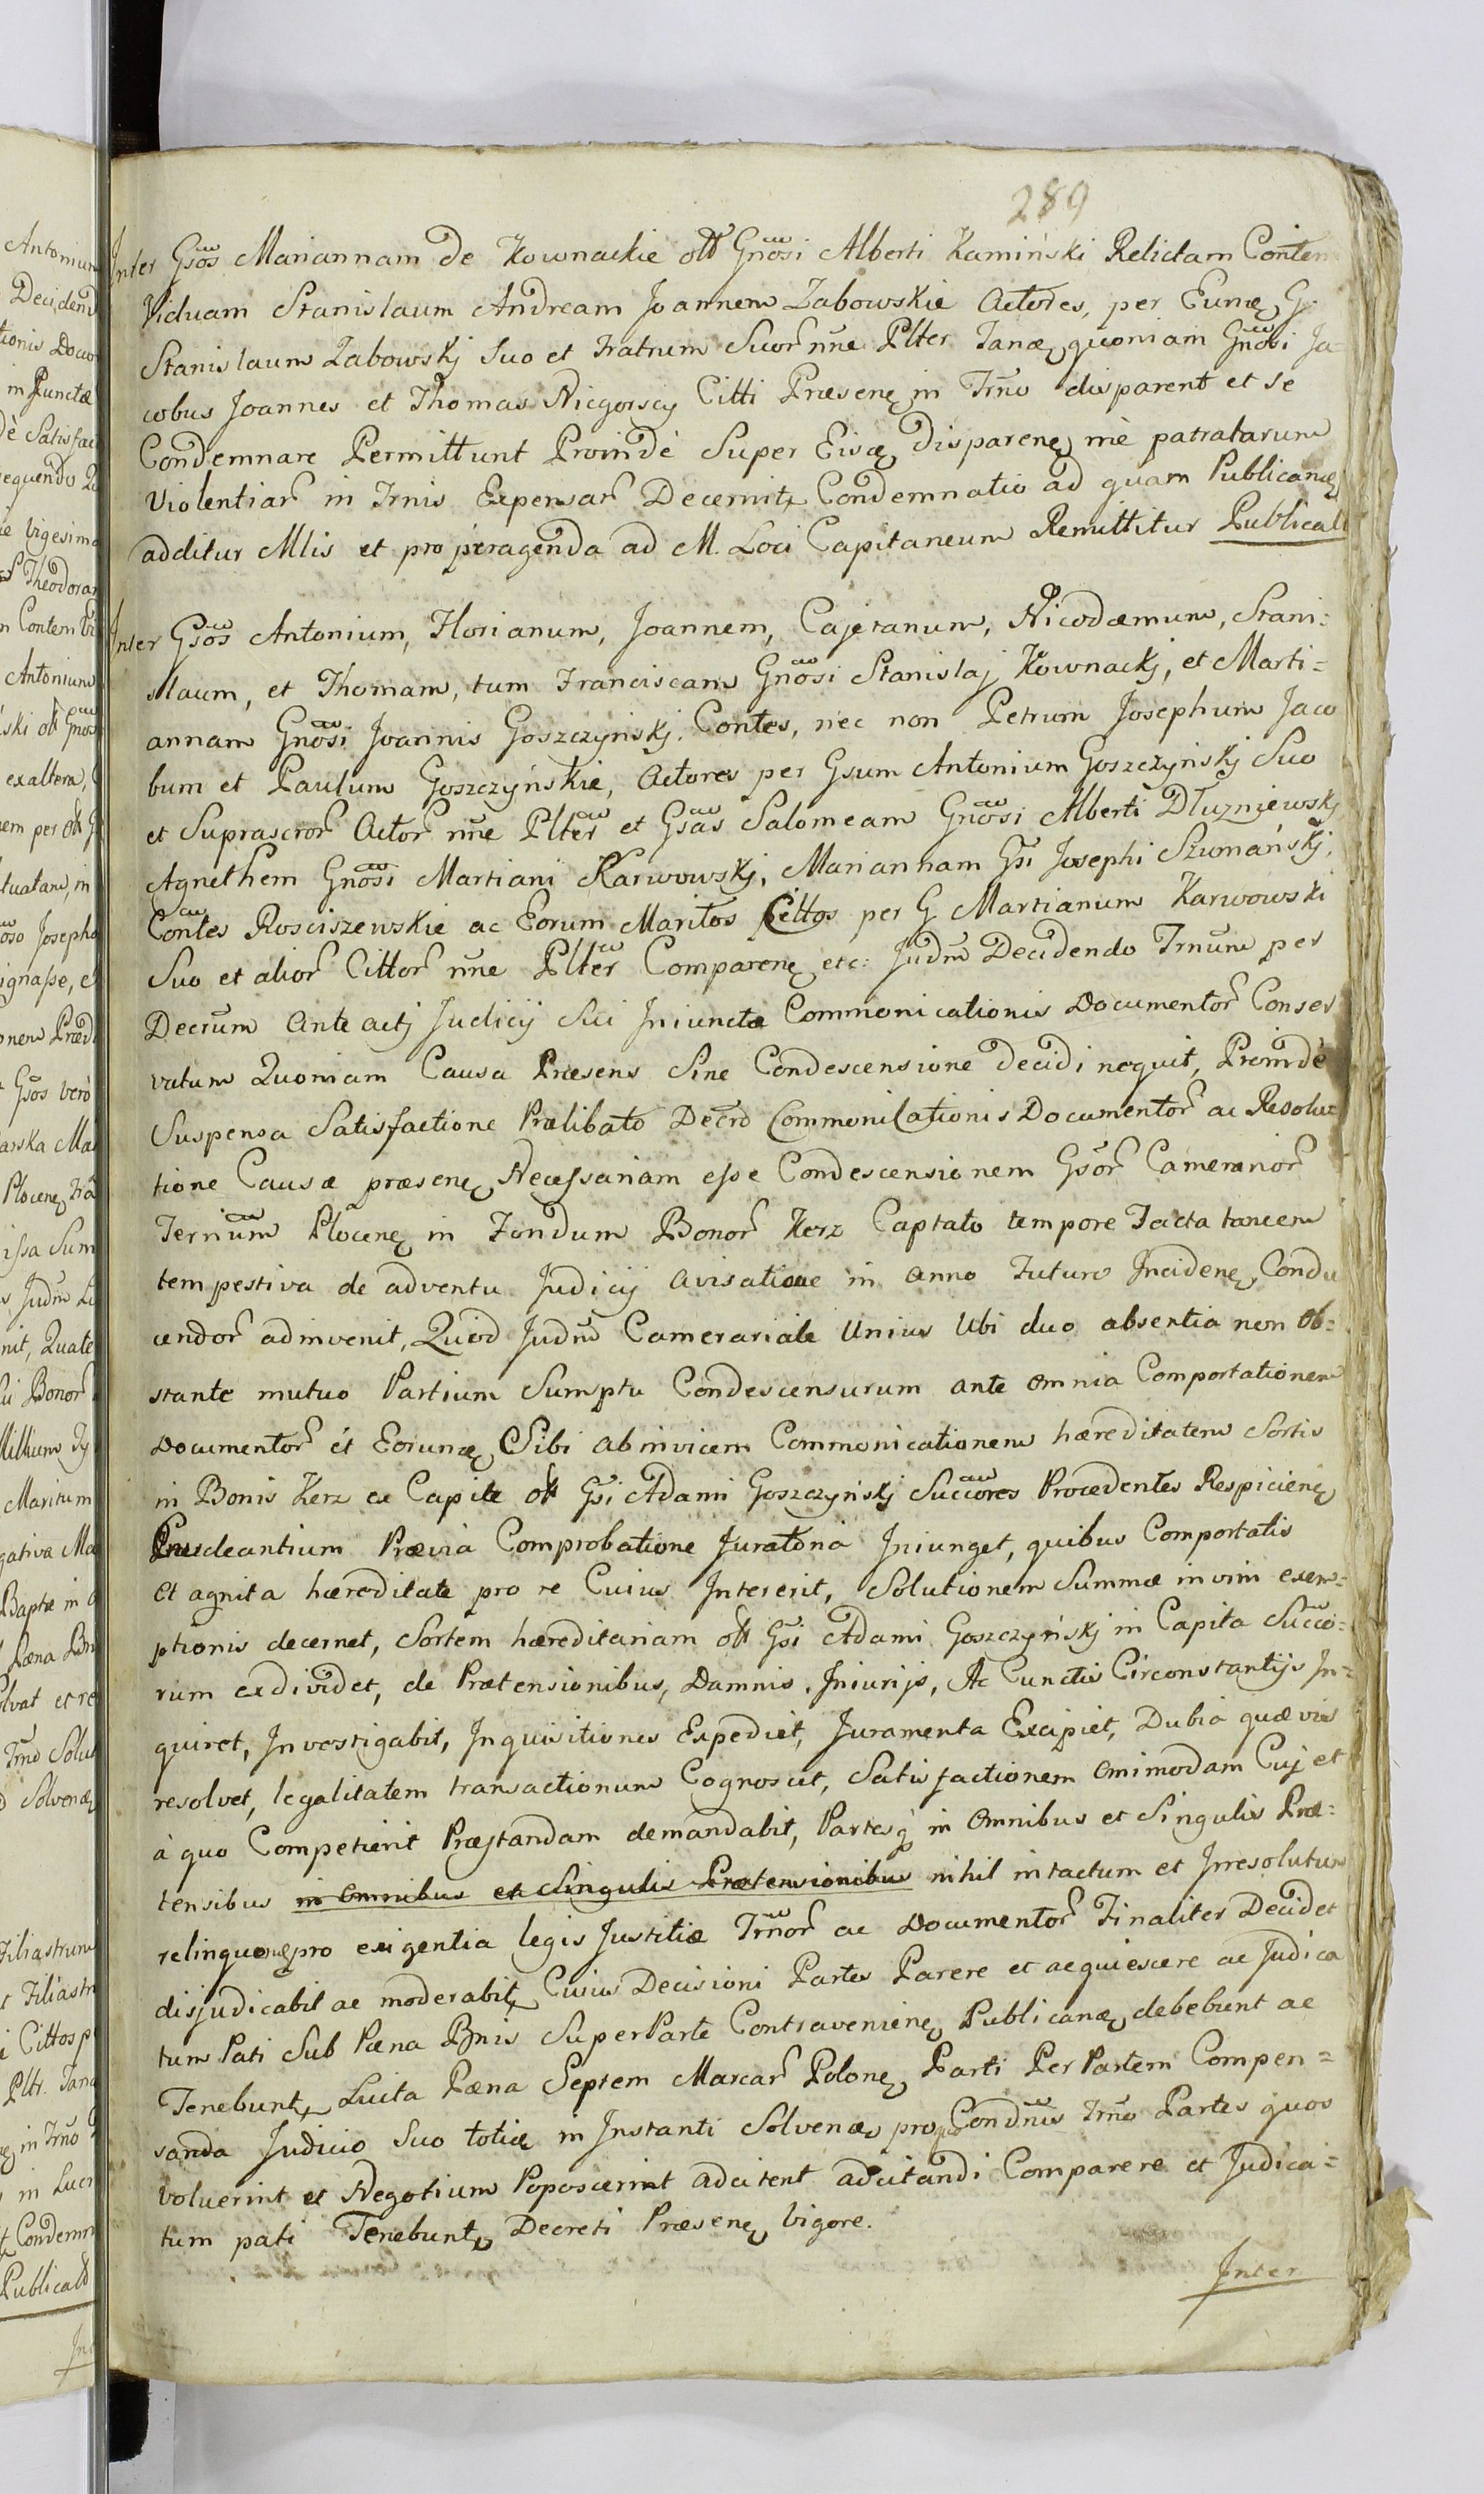 289
Inter Gsos Mariannam de Kownackie olt Gnosi Alberti Kamiński Relictam Conten
Viduam Stanislaum Andream Joannem Zabowskie Actores, per Eunq G
Stanislaum Zabowskj Suo et Fratrum Suor nne Plter Tanq quoniam Gnosi Ja=
cobus Joannes et Thomas Niegorscy Citti Præsenq in Trno disparent et se
Condemnare Permittunt Proinde Super Eisq disparenq mè patratarum
Violentiar in Trnis Expensar Decernitr Condemnatio ad quam Publicanq
additur Mlis et pro peragenda ad M. Loci Capitaneum Remittitur Publicatt
Inter Gsos Antonium, Florianum, Joannem, Cajetanum, Nicodæmum, Stani=
slaum, et Thomam, tum Franciscam Gnosi Stanislaj Kownackj, et Marti=
annam Gnosi Joannis Goszczyńskj. Contes, nec non Petrum Josephum Jaco
bum et Paulum Goszczyńskie, Actores per Gsum Antonium Goszczyńskj Suo
et Suprascror Actor nne Plter et Gsas Salomeam Gnosi Alberti Dłużniewskj
Agnethem Gnosi Martiani Karwowskj, Mariannam Gsi Josephi Szumańskj,
Contes Rosciszewskie ac Eorum Maritos Cittos per G Martianum Karwowski
Suo et alior Cittor nne Plter Comparenq etc: Judm Decidendo Trnum per
Decrum Ante actj Judicij Sui Iniunctæ Commonicationis Documentor Conser
vatum Quoniam Causa Præsens Sine Condescensione decidi nequit, Proindè
Suspensa Satisfactione Prælibato Decro Commonicationis Documentor ac Resolu=
tione Causæ præsenq Necessariam esse Condescensionem Gsor Camerarior
Ternum Plocenq in Fundum Bonor Kerz Captato tempore Facta tancem
tempestiva de adventu Judicij avisatione in anno Futuro Incidenq, Condu
cendor adinvenit, Quod Judm Camerariale Unius Ubi duo absentia non Ob=
stante mutuo Partium Sumptu Condescensurum ante omnia Comportationem
Documentor et Eorunq Sibi abinvicem Commonicationem hæreditatem Sortis
in Bonis Kerz ex Capite olt Gsi Adami Goszczyńskj Succores Procedentes Respicienq
Præcleantium Prævia Comprobatione Juratoria Iniunget, quibus Comportatis
et agnita hæreditate pro re Cuius Intererit, Solutionem Summæ in vim exem=
ptionis decernet, Sortem hæreditariam olt Gsi Adami Goszczyńskj in Capita Succo=
rum exdividet, de Prætensionibus, Damnis, Iniurijs, Ac Cunctis Circonstantijs In=
quiret, Investigabit, Inquisitiones Expediet, Juramenta Excipiet, Dubia quævis
resolvet, legalitatem transactionum Cognoscet, Satisfactionem omimodam Cuj et
à quo Competierit Præstandam demandabit, Partesq in Omnibus et Singulis Præ=
tensibus in Omnibus et Singulis Prætensionibus nihil intactum et Irresolutum
relinquenq pro exigentia legis Justitiæ Trnor ac Documentor Finaliter Decidet
disjudicabit ac moderabitr Cuius Decisioni Partes Parere et acquiescere ac Judica
tum Pati Sub Pæna Bnis Super Parte Contravenienq Publicanq debebunt ac
Tenebuntr Luita Pæna Septem Marcar Polonq Parti Per Partem Compen=
sanda Judicio Suo totiq in Instanti Solvenq pro quo Condnis Trno Partes quos
Voluerint et Negotium Poposcerint adcitent adcitandi Comparere et Judica=
tum pati Tenebuntr Decreti Præsenq vigore.
Inter